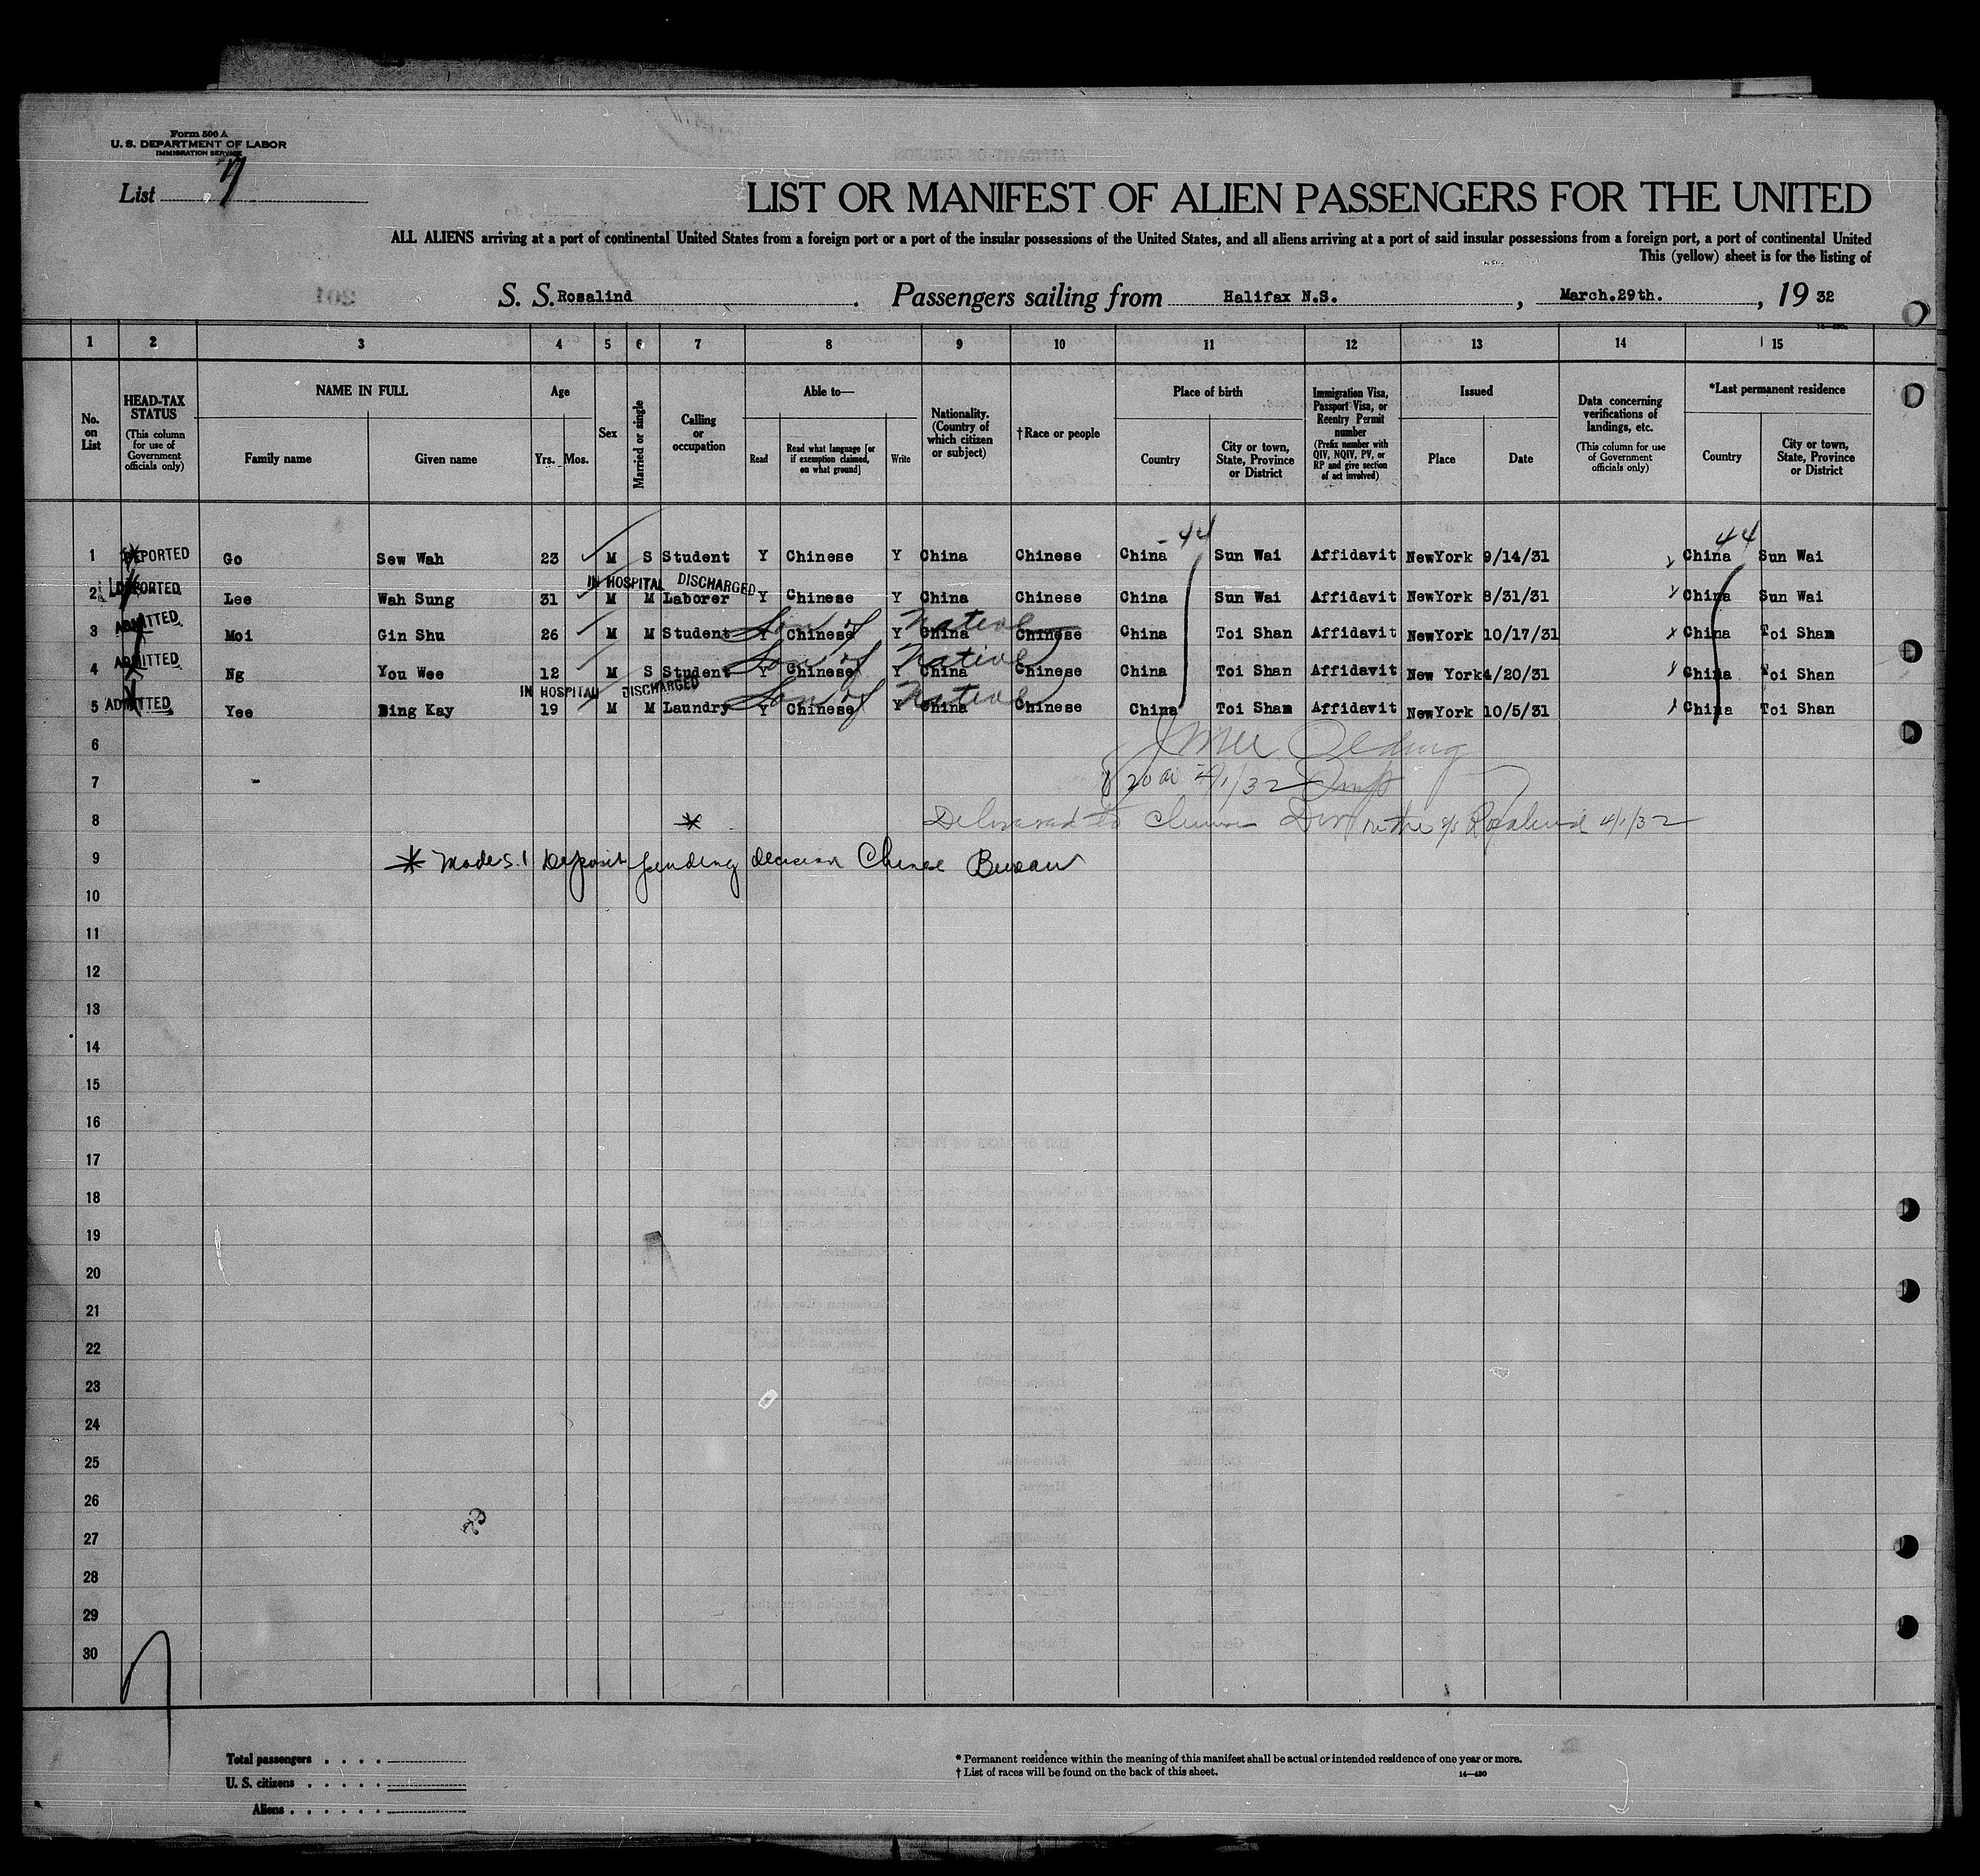 Form 500 A
U. S. DEPARTMENT OF LABOR
IMMIGRATION SERVICE
List 7
LIST OR MANIFEST OF ALIEN PASSENGERS FOR THE UNITED
ALL ALIENS arriving at a port of continental United States from a foreign port or a port of the insular possessions of the United States, and all aliens arriving at a port of said insular possessions from a foreign port, a port of continental United
This (yellow) sheet is for the listing of
S. S. Rosalind. Passengers sailing from Halifax N.S., March.29th., 19 32
1 2 3 4 5 6 7 8 9 10 11 12 13 14 15
No. on List
HEAD-TAX STATUS (This column for use of Government officials only)
NAME IN FULL Family name Given name
Age Yrs. Mos.
Sex
Married or single
Calling or occupation
Able to— Read Read what language [or if exemption claimed, on what ground] Write
Nationality. (Country of which citizen or subject)
†Race or people
Place of birth Country City or town, State, Province or District
Immigration Visa, Passport Visa, or Reentry Permit number (Prefix number with QIV, NQIV, PV, or RP and give section of act involved)
Issued Place Date
Data concerning verifications of landings, etc. (This column for use of Government officials only)
*Last permanent residence Country City or town, State, Province or District
44 44
1 DEPORTED Go Sew Wah 23 M S Student Y Chinese Y China Chinese China Sun Wai Affidavit NewYork 9/14/31 China Sun Wai
IN HOSPITAL DISCHARGED
2 DEPORTED Lee Wah Sung 31 M M Laborer Y Chinese Y China Chinese China Sun Wai Affidavit NewYork 8/31/31 China Sun Wai
Son of Native
3 ADMITTED Moi Gin Shu 26 M M Student Y Chinese Y China Chinese China Toi Shan Affidavit NewYork 10/17/31 China Toi Shan
Son of Native
4 ADMITTED Ng You Wee 12 M S Student Y Chinese Y China Chinese China Toi Shan Affidavit New York 4/20/31 China Toi Shan
IN HOSPITAL DISCHARGED
Son of Native
5 ADMITTED Yee Bing Kay 19 M M Laundry Y Chinese Y China Chinese China Toi Shan Affidavit NewYork 10/5/31 China Toi Shan
6
7 20 4/1/32
8 * Delivered to Chinese Div Rosalind 4/1/32
9 * Deposit pending decision Chinese Bureau
10
11
12
13
14
15
16
17
18
19
20
21
22
23
24
25
26
27
28
29
30
Total passengers . . . .
U. S. citizens . . . . .
Aliens . . . . . .
* Permanent residence within the meaning of this manifest shall be actual or intended residence of one year or more.
† List of races will be found on the back of this sheet.
14—430